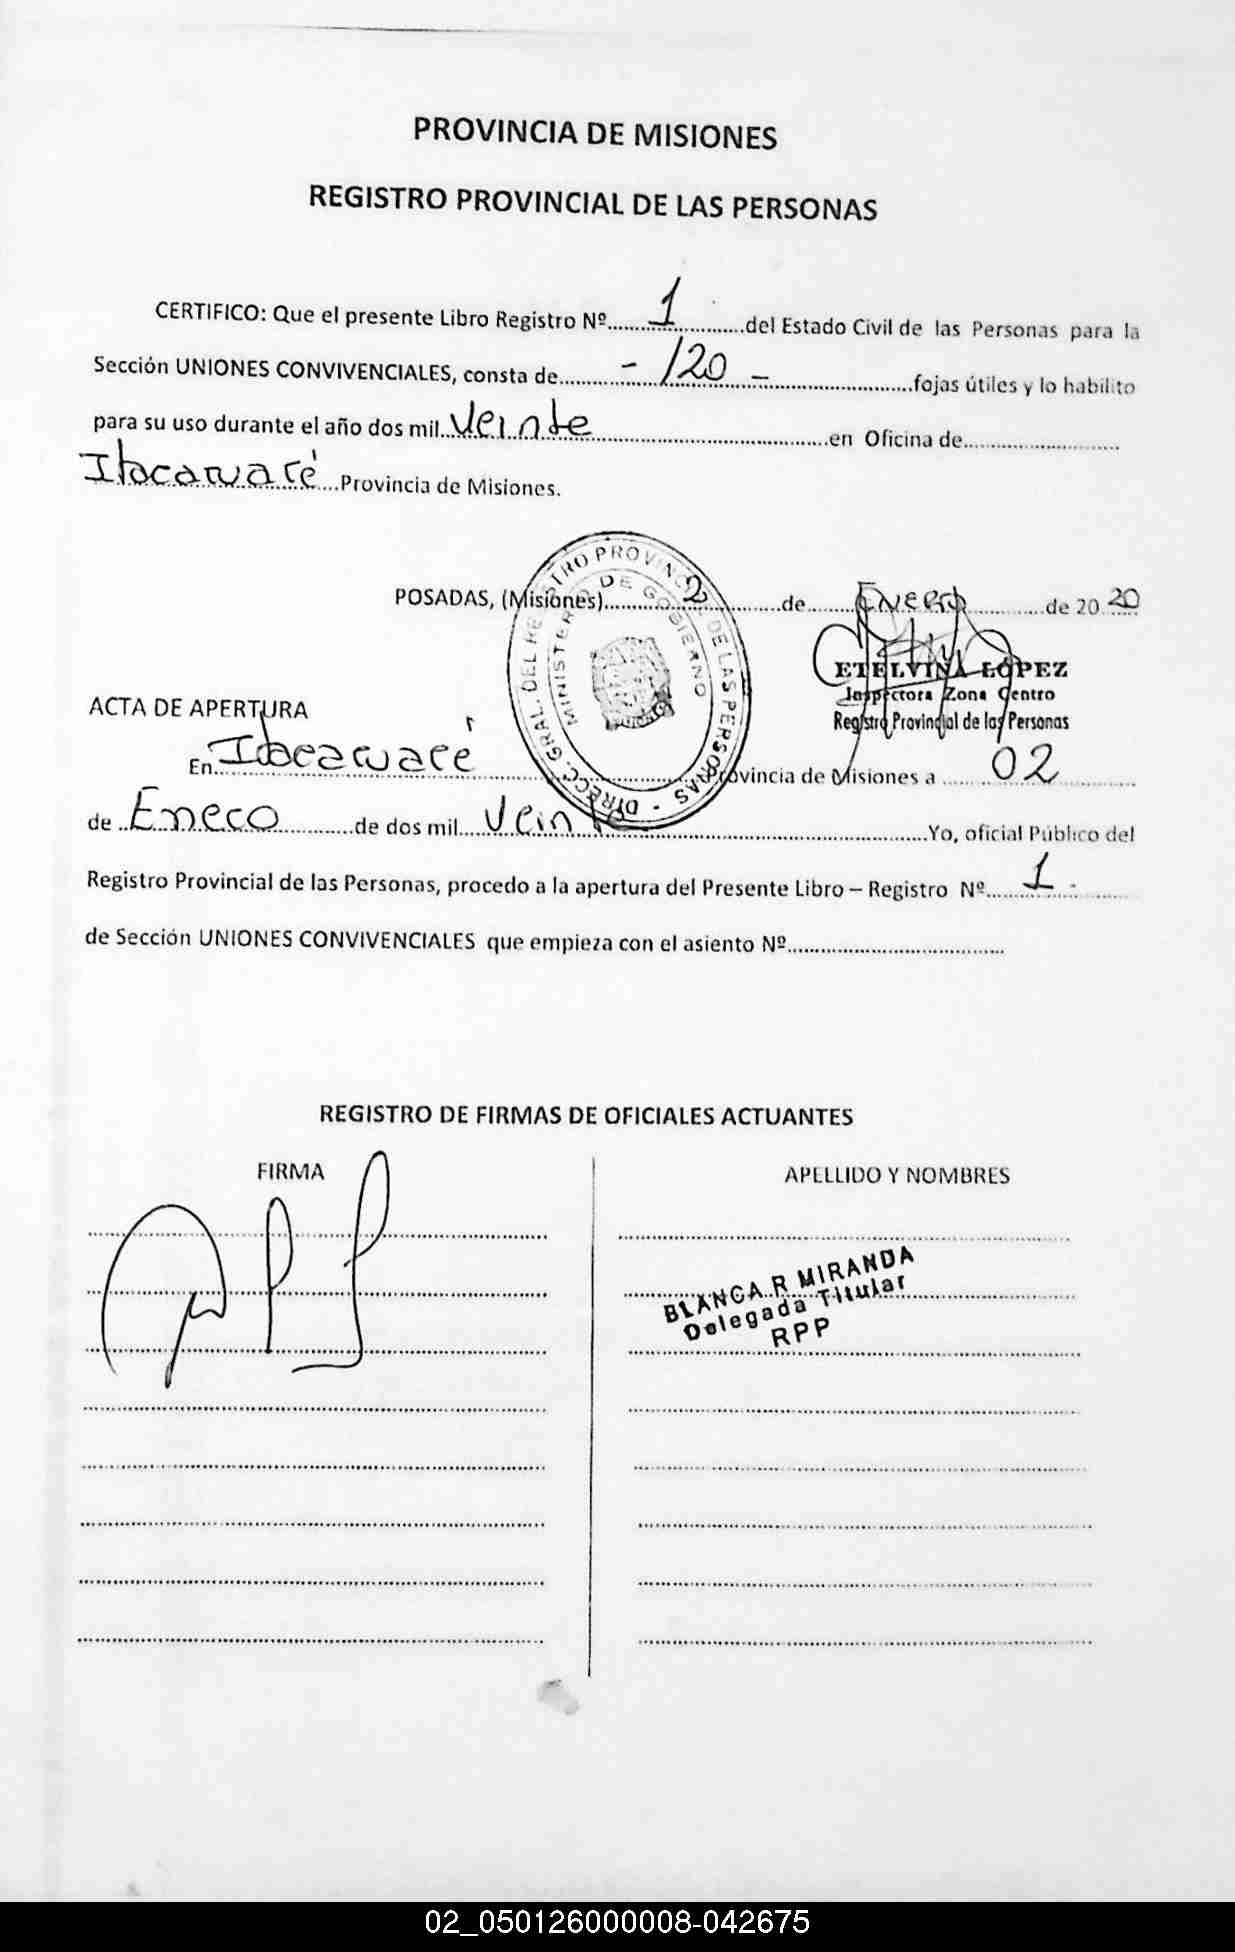 PROVINCIA DE MISIONES
REGISTRO PROVINCIAL DE LAS PERSONAS
CERTIFICO: Que el presente Libro Registro Nº 1 del Estado Civil de las Personas para la
Sección UNIONES CONVIVENCIALES, consta de - 120 - fojas útiles y lo habilito
para su uso durante el año dos mil Veinte en Oficina de
Itacaruaré Provincia de Misiones.
POSADAS, (Misiones) 2 de Enero de 2020
DIRECC. GRAL. DEL REGISTRO PROVINCIAL DE LAS PERSONAS -
MINISTERIO DE GOBIERNO
ETELVINA LÓPEZ
Inspectora Zona Centro
Registro Provincial de las Personas
ACTA DE APERTURA
En Itacaruaré Provincia de Misiones a 02
de Enero de dos mil Veinte Yo, oficial Público del
Registro Provincial de las Personas, procedo a la apertura del Presente Libro – Registro Nº 1
de Sección UNIONES CONVIVENCIALES que empieza con el asiento Nº
REGISTRO DE FIRMAS DE OFICIALES ACTUANTES
FIRMA APELLIDO Y NOMBRES
BLANCA R MIRANDA
Delegada Titular
RPP
02_050126000008-042675